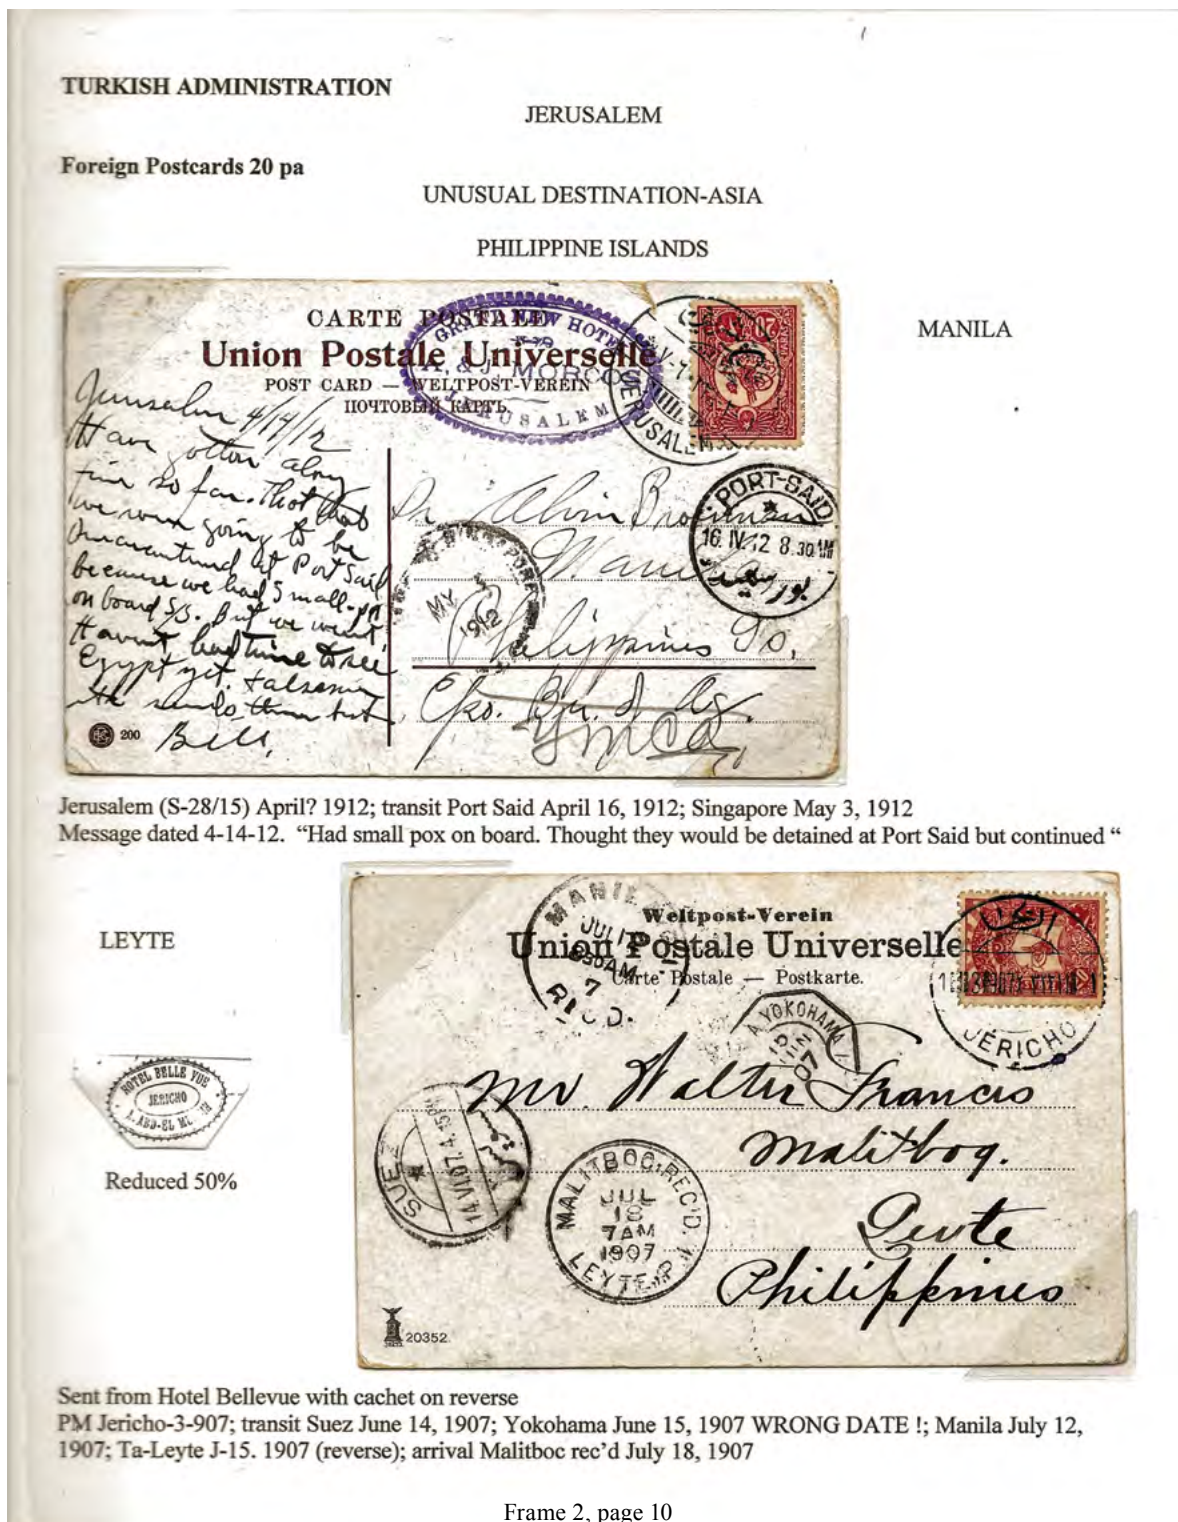 TURKISH ADMINISTRATION
JERUSALEM
Foreign Postcards 20 pa
UNUSUAL DESTINATION-ASIA
PHILIPPINE ISLANDS
MANILA
CARTE POSTALE
Union Postale Universelle
POST CARD — WELTPOST-VEREIN
ПОЧТОВЫЙ КАРТЪ.
GRAND NEW HOTEL
A. & J. MORCOS
JERUSALEM
JERUSALEM
PORT-SAID
16 IV 12 8.30 AM
بور سعيد
SINGAPORE
MY
1912
Jerusalem 4/14/12
Have gotten along
fine so far. Thot that
we were going to be
Quarantined at Port Said
because we had Small-pox
on board S/S. But we weren't
Havent had time to see
Egypt yet.
Bill.
200
Dr Alvin
Manila
Philippines Is.
YMCA
Jerusalem (S-28/15) April? 1912; transit Port Said April 16, 1912; Singapore May 3, 1912
Message dated 4-14-12. “Had small pox on board. Thought they would be detained at Port Said but continued “
LEYTE
HOTEL BELLE VUE
JERICHO
Reduced 50%
Weltpost-Verein
Union Postale Universelle
Carte Postale — Postkarte.
JUL
30 AM
7
YOKOHAMA
15
JUIN
07
JERICHO
Mr. Walter Francis
Malitbog.
Leyte
Philippines
SUEZ
14 VI 07. 4.15 PM
MALITBOG, REC'D.
JUL
18
7 AM
1907
LEYTE, P.I.
20352.
Sent from Hotel Bellevue with cachet on reverse
PM Jericho-3-907; transit Suez June 14, 1907; Yokohama June 15, 1907 WRONG DATE !; Manila July 12,
1907; Ta-Leyte J-15. 1907 (reverse); arrival Malitboc rec’d July 18, 1907
Frame 2, page 10